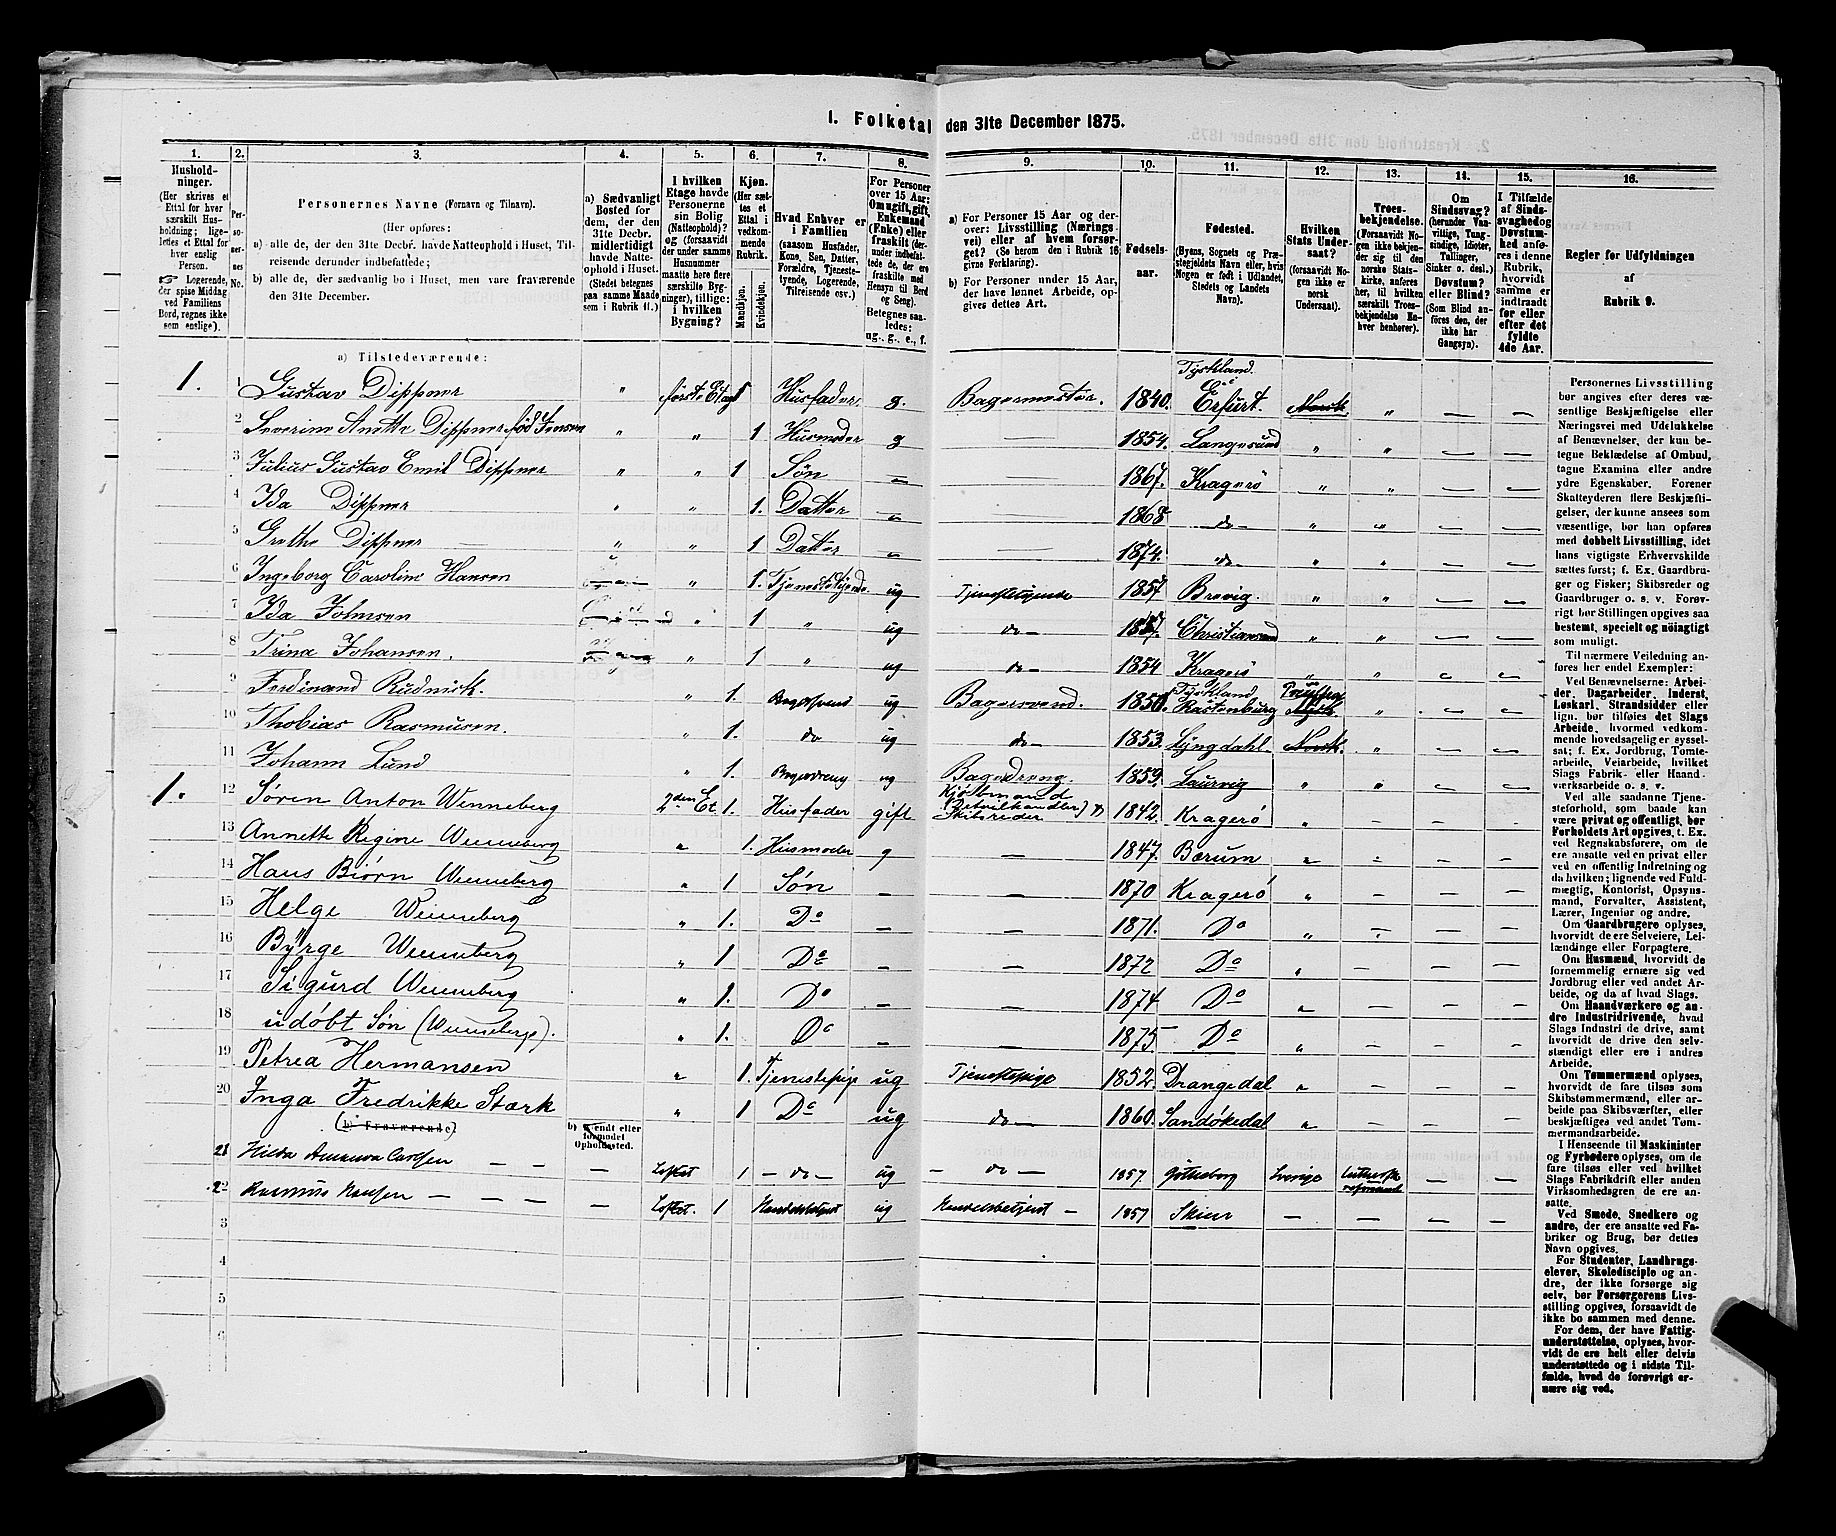 1. Folketal den 31te December 1875.
1. 2. 3. 4. 5. 6. 7. 8. 9. 10. 11. 12. 13. 14. 15. 16.
Husholdninger.
(Her skrives et
Ettal for hver
særskilt Husholdning; ligeledes
et Ettal for
hver enslig
Person.
☞ Logerende,
der spise Middag
ved Familiens
Bord, regnes ikke
som enslige).
Personernes No.
Personernes Navne (Fornavn og Tilnavn).
(Her opføres:
a) alle de, der den 31te Decbr. havde Natteophold i Huset, Tilreisende
derunder indbefattede;
b) alle de, der sædvanlig bo i Huset, men vare fraværende
den 31te December.
a) Sædvanligt
Bosted for
dem, der den
31te Decbr.
midlertidigt
havde Natteophold
i Huset.
(Stedet betegnes
paa samme Maade
som i Rubrik 11.)
I hvilken
Etage havde
Personerne
sin Bolig
(Natteophold)?
og (forsaavidt
der under samme
Husnummer
maatte høre flere
særskilte Bygninger),
tillige:
i hvilken
Bygning?
Kjøn.
(Her sættes
et
Ettal i
vedkommende
Rubrik.
Mandkjøn.
Kvindekjøn.
Hvad Enhver er
i Familien
(saasom Husfader,
Kone, Søn, Datter,
Forældre, Tjenestetyende,
Logerende,
Tilreisende osv.)
For Personer
over 15 Aar:
Om ugift, gift,
Enkemand
(Enke) eller
fraskilt (derunder
indbefattede
de, der ere
fraskilte med
Hensyn til Bord
og Seng).
Betegnes saaledes:
ug., g., e., f.
a) For Personer 15 Aar og derover:
Livsstilling (Næringsvei)
eller af hvem forsørget?
(Se herom den i Rubrik 16
givne Forklaring).
b) For Personer under 15 Aar,
der have lønnet Arbeide, opgives
dettes Art.
Fødselsaar.
Fødested.
(Byens, Sognets og Præstegjeldets
Navn eller, hvis
Nogen er født i Udlandet,
Stedets og Landets
Navn).
Hvilken
Stats Undersaat?
(forsaavidt Nogen
ikke er
norsk
Undersaat).
Troesbekjendelse.
(Forsaavidt Nogen
ikke bekjender
sig til den
norske Statskirke,
anføres
her, til hvilken
særskilt Troesbekjendelse
Enhver
henhører).
Om
Sindssvag?
(herunder Vanvittige,
Tungsindige,
Idioter,
Tullinger,
Sinker o. desl.)
Døvstum?
eller Blind?
(Som Blind anføres
den, der
ikke har
Gangsyn).
I Tilfælde
af Sindssvaghed
og
Døvstumhed
anføres
i denne
Rubrik,
hvorvidt
samme er
indtraadt
før eller
efter det
fyldte
4de Aar.
Regler for Udfyldningen
af
Rubrik 9.
a) Tilstedeværende:
1. 1 Gustav Dippner „ første Etage 1 Husfader. g. Bagermester. 1840. Tyskland Erfurt. Norsk. „ — —
2 Severine Anette Dippner, fød Jensen „ „ 1 Husmoder g — 1854. Langesund „ „ — —
3 Julius Gustav Emil Dippner „ „ 1 Søn — — 1867. Kragerö „ „ — —
4 Ida Dippner „ „ 1. Datter — — 1868 do „ „ — —
5 Grethe Dippner „ „ 1 Datter — — 1874. do „ „ — —
6 Ingeborg Caroline Hansen „ 1. Tjenestetyende. ug Tjenestetyende 1857 Brevig. „ „ — —
7 Ida Johnsen „ 1 „ ug do — 1857. Christiansund „ „ — —
8 Trina Johansen. „ 1 „ ug do — 1854 Kragerö „ „ — —
9 Ferdinand Rudnick. „ 1. Bagersvend ug Bagersvend. 1850. Tyskland Rastenburg „ — —
10 Thobias Rasmusen. „ 1. do ug do — 1853. Lyngdahl. Norsk. „ — —
11 Johann Lund „ 1. Bagerdreng ug Bagerdreng. 1859. Laurvig „ „ — —
1. 12 Søren Anton Wenneberg 2den Et. 1. Husfader gift Kjøbmand (Detailhandler) & Skibsreder 1842. Kragerö „ — — —
13 Annette Regine Wenneberg „ 1. Husmoder g — 1847. Bærum „ — — —
14 Hans Biørn Wenneberg „ 1 Søn — — 1870 Kragerö „ — — —
15 Helge Wenneberg „ 1. Do — — 1871. Do „ — — —
16 Byrge Wenneberg „ 1 Do — — 1872 Do „ — — —
17 Sigurd Wenneberg „ 1. Do — — 1874. Do „ — — —
18 udöbt Søn (Wenneberg). „ 1. Do — — 1875 Do „ — — —
19 Petrea Hermansen „ 1. Tjenestepige ug Tjenestepige 1852. Drangedal „ — — —
20 Inga Fredrikke Stærk „ 1 Do ug do — 1860. Sandökedal „ — — —
(b) Fraværende) b) Kjendt eller formodet Opholdssted.
21 Hilda Amanda Carlsen — — — Loftet 1 — do — ug — do — 1857. Götheborg Sverige Luthersk reformeret — —
22 Rasmus Hansen — — — Loftet. 1 Handelsbetjent ug Handelsbetjent — 1857 Skien — — — —
3
4
5
6
Personernes Livsstilling
bør angives efter deres væsentlige
Beskjæftigelse eller
Næringsvei med Udelukkelse
af Benævnelser, der kun betegne
Beklædelse af Ombud,
tagne Examina eller andre
ydre Egenskaber. Forener
Skatteyderen flere Beskjæftigelser,
der kunne ansees som
væsentlige, bør han opføres
med dobbelt Livsstilling, idet
hans vigtigste Erhvervskilde
sættes først; f. Ex. Gaardbruger
og Fisker; Skibsreder og
Gaardbruger o. s. v. Forøvrigt
bør Stillingen opgives saa
bestemt, specielt og nöiagtigt
som muligt.
Til nærmere Veiledning anføres
her endel Exempler:
Ved Benævnelserne: Arbeider,
Dagarbeider, Inderst,
Løskarl, Strandsidder eller
lign. bør tilføies det Slags
Arbeide, hvormed vedkommende
hovedsagelig er sysselsat;
f. Ex. Jordbrug, Tomtearbeide,
Veiarbeide, hvilket
Slags Fabrik- eller Haandværksarbeide
o. s. v.
Ved alle saadanne Tjenesteforhold,
som baade kan
være privat og offentligt, bør
Forholdets Art opgives, t. Ex.
ved Regnskabsførere, om de
ere ansatte ved en privat eller
ved en offentlig Indretning og
da hvilken; lignende ved Fuldmægtig,
Kontorist, Opsynsmand,
Forvalter, Assistent,
Lærer, Ingeniør og andre.
Om Gaardbrugere oplyses,
hvorvidt de ere Selveiere, Leilændinge
eller Forpagtere.
Om Husmænd, hvorvidt de
fornemmelig ernære sig ved
Jordbrug eller ved andet Arbeide,
og da af hvad Slags.
Om Haandværkere og andre
Industridrivende, hvad
Slags Industri de drive, samt
hvorvidt de drive den selvstændigt
eller ere i andres
Arbeide.
Om Tømmermænd oplyses,
hvorvidt de fare tilsøs som
Skibstømmermænd, eller arbeide
paa Skibsværfter, eller
beskjæftiges ved andet Tømmermandsarbeide.
I Henseende til Maskinister
og Fyrbødere oplyses, om de
fare tilsøs eller ved hvilket
Slags Fabrikdrift eller anden
Virksomhedsgren de ere ansatte.
Ved Smede, Snedkere og
andre, der ere ansatte ved Fabriker
og Brug, bør dettes
Navn opgives.
For Studenter, Landbrugselever,
Skoledisciple og andre,
der ikke forsørge sig
selv, bør Forsørgerens Livsstilling
opgives, forsaavidt de
ikke bo sammen med denne.
For dem, der have Fattigunderstøttelse,
oplyses, hvorvidt
de ere helt eller delvis
understøttede og i sidste Tilfælde,
hvad de forøvrigt ernære
sig ved.